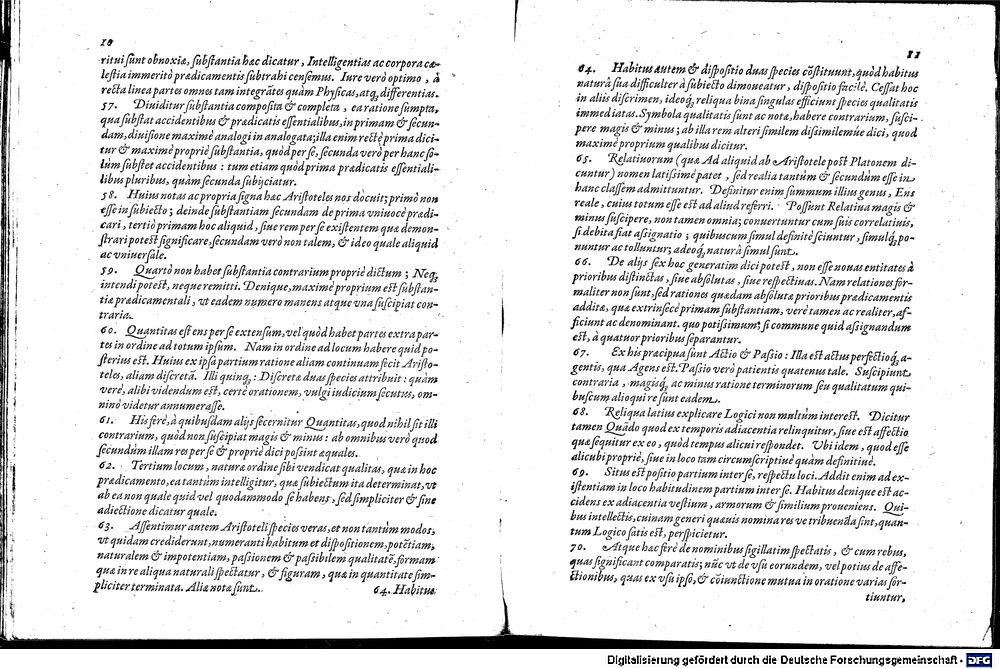 10
ritui sunt obnoxiæ, substantia hæc dicatur, Intelligentias ac corpora cæ-
lestia immeritò prædicamentis subtrahi censemus. Iure verò optimo, à
recta linea partes omnes tam integrātes quàm Physicas, atq́; differentias.
57. Diuiditur substantia composita & completa, ea ratione sumpta,
qua substat accidentibus & prædicatis essentialibus, in primam & secun-
dam, diuisione maximè analogi in analogata; illa enim rectè prima dici-
tur & maximè propriè substantia, quòd per sé, secunda verò per hanc so-
lùm substet accidentibus : tum etiam quòd prima prædicatis essentiali-
libus pluribus, quàm secunda subijciatur.
58. Huius notas ac propria signa hæc Aristoteles nos docuit; primò non
esse in subiecto; deinde substantiam secundam de prima vniuocè prædi-
cari, tertiò primam hoc aliquid, siue rem per se existentem quæ demon-
strari potest significare, secundam verò non talem, & ideo quale aliquid
ac vniuersale.
59. Quartò non habet substantia contrarium propriè dictum ; Neq́;
intendi potest, neque remitti. Denique, maximè proprium est substan-
tiæ prædicamentali, vt eadem numero manens atque vna suscipiat con-
traria.
60. Quantitas est ens per se extensum, vel quòd habet partes extra par-
tes in ordine ad totum ipsum. Nam in ordine ad locum habere quid po-
sterius est. Huius ex ipsa partium ratione aliam continuam fecit Aristo-
teles, aliam discretā. Illi quinq́; : Discretæ duas species attribuit : quàm
verè, alibi videndum est, certè orationem, vulgi iudicium secutus, om-
ninò videtur annumerasse.
61. His ferè, à quibusdam alijs secernitur Quantitas, quod nihil sit illi
contrarium, quòd non suscipiat magis & minus : ab omnibus verò quod
secundùm illam res per se & propriè dici possint æquales.
62. Tertium locum, naturæ ordine sibi vendicat qualitas, quæ in hoc
prædicamento, ea tantùm intelligitur, quæ subiectum ita determinat, vt
ab ea non quale quid vel quodammodo se habens, sed simpliciter & sine
adiectione dicatur quale.
63. Assentimur autem Aristoteli species veras, et non tantùm modos,
vt quidam crediderunt, numeranti habitum et dispositionem, potētiam,
naturalem & impotentiam, passionem & passibilem qualitatē, formam
quæ in re aliqua naturali spectatur, & figuram, quæ in quantitate sim-
pliciter terminata. Aliæ notæ sunt.
64. Habitus
11
64. Habitus autem & dispositio duas species cōstituunt, quòd habitus
naturâ sua difficulter à subiecto dimoueatur, dispositio facilè. Cessat hoc
in alijs discrimen, ideoq́; reliqua bina singulas efficiunt species qualitatis
immediatas. Symbola qualitatis sunt ac notæ, habere contrarium, susci-
pere magis & minus ; ab illa rem alteri similem dissimilemúe dici, quod
maximè proprium qualibus dicitur.
65. Relatiuorum (quæ Ad aliquid ab Aristotele post Platonem di-
cuntur) nomen latissimè patet, sed realia tantùm & secundùm esse in
hanc classem admittuntur. Definitur enim summum illius genus, Ens
reale, cuius totum esse est ad aliud referri. Possunt Relatiua magis &
minus suscipere, non tamen omnia; conuertuntur cum suis correlatiuis,
si debita fiat assignatio ; quibuscum simul definitè sciuntur, simulq́; po-
nuntur ac tolluntur; adeoq́; naturâ simul sunt.
66. De alijs sex hoc generatim dici potest, non esse nouas entitates à
prioribus distinctas, siue absolutas, siue respectiuas. Nam relationes for-
maliter non sunt, sed rationes quædam absolutæ prioribus prædicamentis
additæ, quæ extrinsecè primam substantiam, verè tamen ac realiter, af-
ficiunt ac denominant. quo potissimum, si commune quid assignandum
est, à quatuor prioribus separantur.
67. Ex his præcipua sunt Actio & Passio : Illa est actus perfectioq́; a-
gentis, qua Agens est. Passio verò patientis quatenus tale. Suscipiunt
contraria, magisq́; ac minus ratione terminorum seu qualitatum qui-
buscum alioqui re sunt eadem.
68. Reliqua latius explicare Logici non multùm interest. Dicitur
tamen Quādo quod ex temporis adiacentia relinquitur, siue est affectio
quæ sequitur ex eo, quòd tempus alicui respondet. Vbi idem, quod esse
alicubi propriè, siue in loco tam circumscriptiuè quàm definitiuè.
69. Situs est positio partium inter se, respectu loci. Addit enim ad ex-
istentiam in loco habitudinem partium inter se. Habitus denique est ac-
cidens ex adiacentia vestium, armorum & similium proueniens. Qui-
bus intellectis, cuinam generi quæuis nomina res ve tribuenda sint, quan-
tum Logico satis est, perspicietur.
70. Atque hæc ferè de nominibus sigillatim spectatis, & cum rebus,
quas significant comparatis; nūc vt de vsu eorundem, vel potius de affe-
ctionibus, quas ex vsu ipso, & cōiunctione mutua in oratione varias sor-
tiuntur,
Digitalisierung gefördert durch die Deutsche Forschungsgemeinschaft - DFG